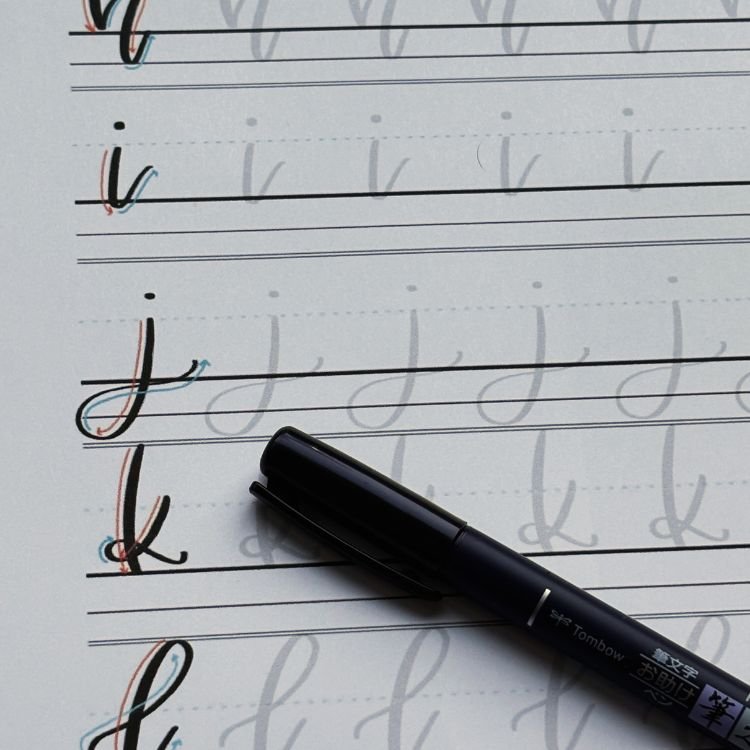 i i i i i
j j j j j
k k k k k
l l l l l
Tombow
筆文字
お助け
ペン
筆